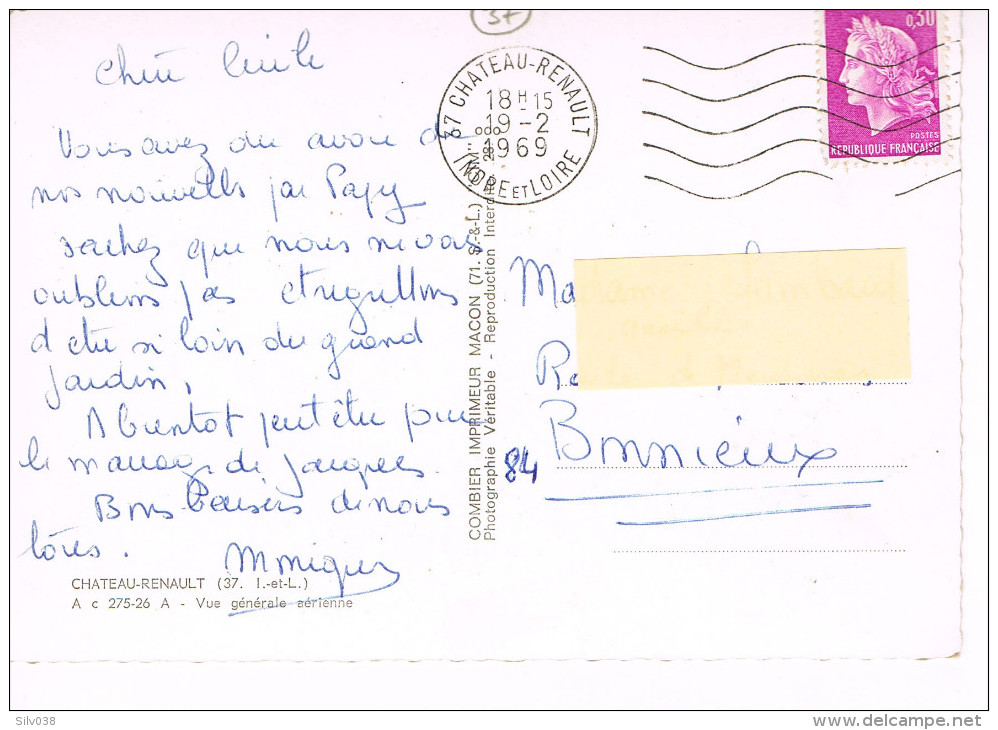 37
Chère Cécile
Vous avez du avoir de
nos nouvelles par Papy
sachez que nous ne vous
oublions pas et regrettons
d'etre si loin du grand
jardin,
A bientot peut être pour
le mariage de Jacques.
Bons baisers de nous
tous.
Monique
CHATEAU-RENAULT (37. I.-et-L.)
A c 275-26 A - Vue générale aérienne
COMBIER IMPRIMEUR MACON (71. S.-&-L.) "CIM"
Photographie Véritable - Reproduction Interdite
37 CHATEAU-RENAULT
18H15
19-2
1969
INDRE ET LOIRE
0,30
POSTES
REPUBLIQUE FRANÇAISE
Ma
84 Bonnieux
Silv038
delcampe.net